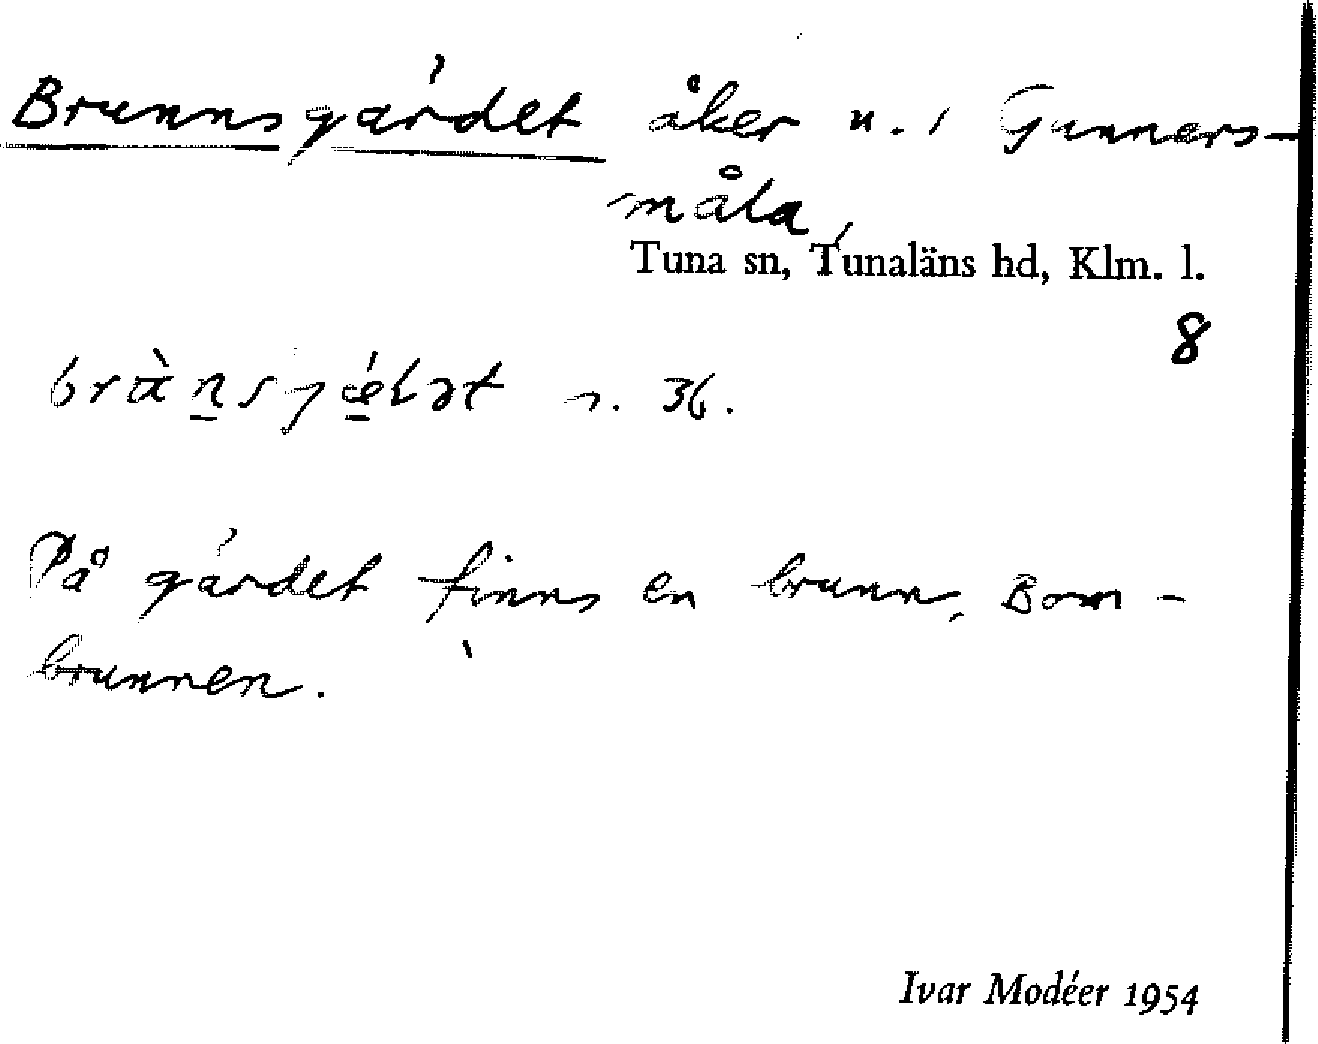 Brunnsgärdet åker n. i Gunners-
måla,
Tuna sn, Tunaläns hd, Klm. l.
8
n. 36.
På gärdet finns en brunn, Bom-
brunnen.
Ivar Modéer 1954